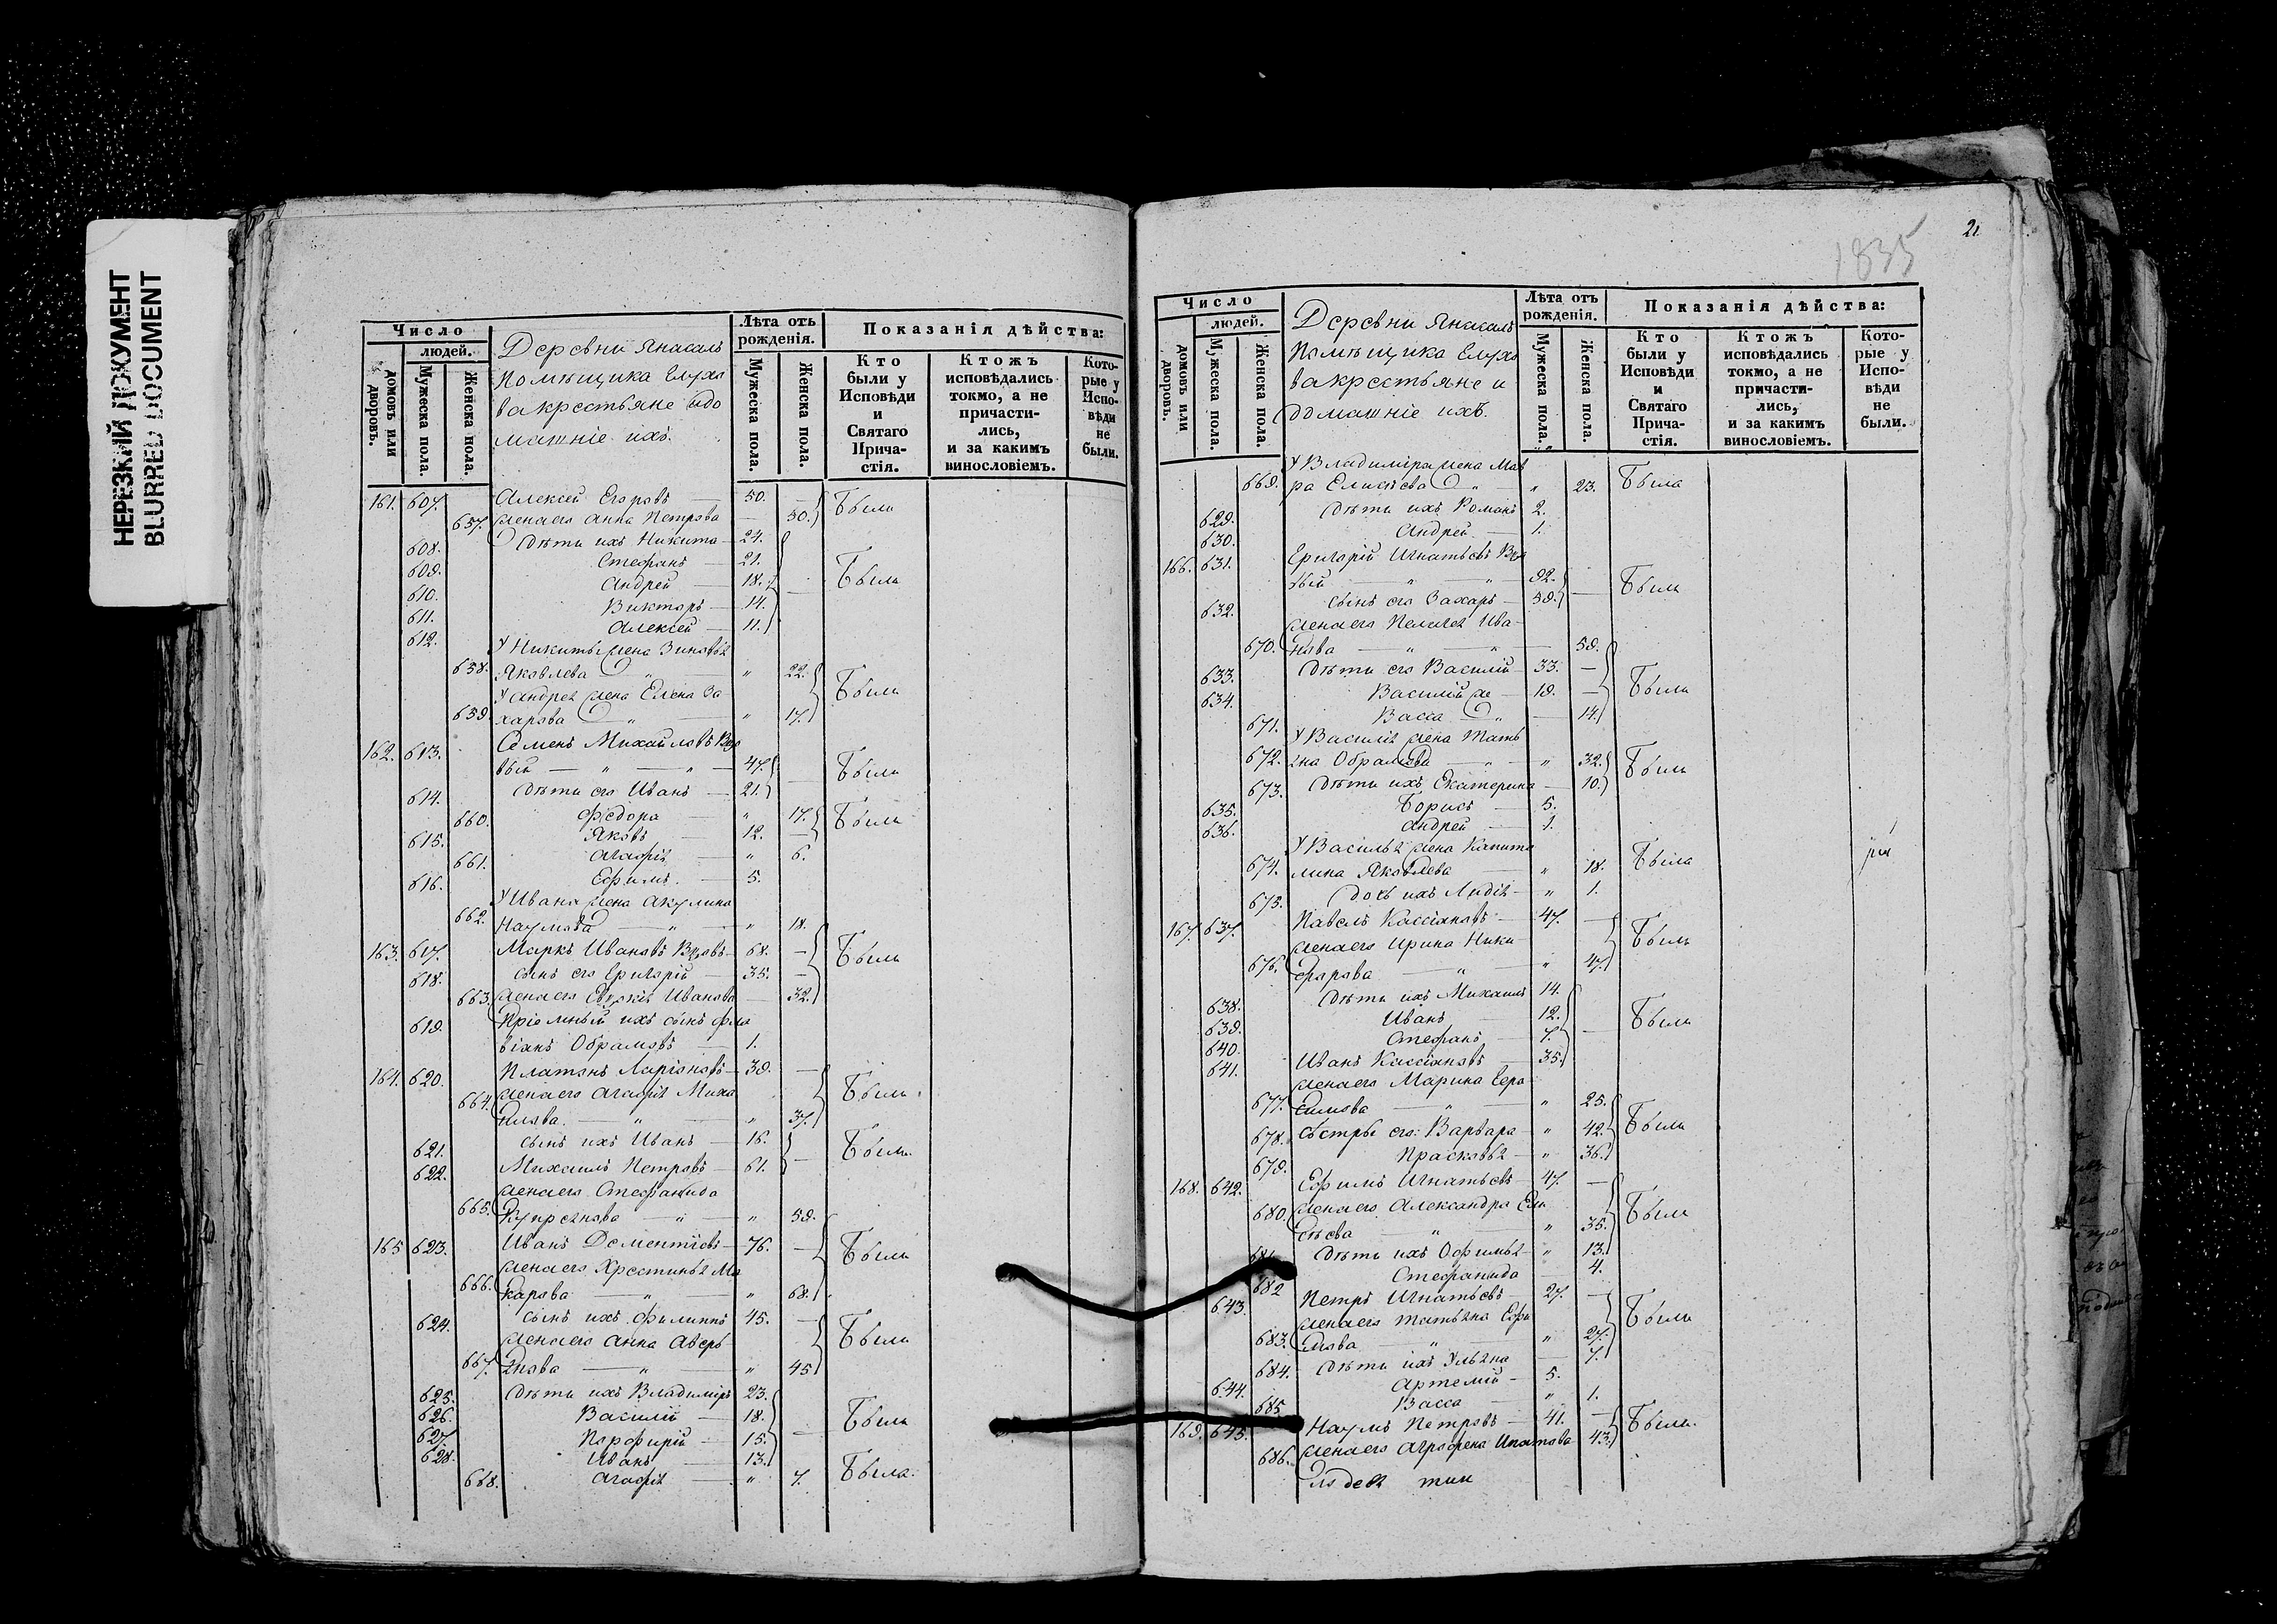 НЕРЕЗКИЙ ДОКУМЕНТ
BLURRED DOCUMENT
Число
людей.
домовъ или дворовъ.
Мужеска пола.
Женска пола.
Деревни Янасалъ
помѣщика Елухо
ва крестьяне идо
машніе ихъ.
Лѣта отъ рожденія.
Мужеска пола.
Женска пола.
Показанія дѣйства:
Кто были у Исповѣди и Святаго Прича-стія.
Ктожъ исповѣдались токмо, а не причасти-лись, и за какимъ винословіемъ.
Кото-рые у Испо-вѣди не были.
161. 607. Алексей Егоровъ — 50. — Были
657. жена его Анна Петрова — 50.
608. Дѣти ихъ Никита — 24.
609. Стефанъ — 21.
610. Андрей — 18. Были
611. Викторъ — 14.
612. Алексей — 11.
У Никиты жена Зиновья
658. Яковлева — " 22. Были
У Андрея жена Елена За
659. харова — " 17.
162. 613. Семенъ Михайловъ Вдо
вый — " — " — 47. Были
614. Дѣти его Иванъ — 21.
660. Федора — " 17. Были
615. Яковъ — 12. —
661. Агафія — " 6.
616. Ефимъ. — 5.
У Ивана жена Акулина
662. Наумова — " — " 18.
163. 617. Маркъ Ивановъ Вдовъ — 68. — Были
618. сынъ его Григорій — 35. —
663. жена его Ивановa — 32.
619. Пріемный ихъ сынъ Фла
віанъ Обрамовъ — 1.
164. 620. Платонъ Ларіоновъ — 39. —
664. жена его Агафія Миха Были.
йлова. — " — " 37.
621. сынъ ихъ Иванъ — 16. Были.
622. Михаилъ Петровъ — 61. —
жена его Стефанида
665. Купреянова — " — " 59.
165 623. Иванъ Дементіевъ — 76. — Были
жена его Хрестинья Ма
666. карова — " — " 68.
624. сынъ ихъ Филиппъ 45. —
жена его Анна Аверь Были
667. янова — " — " 45
625. Дѣти ихъ Владиміръ 23.
626. Василій — 18. Были
627. Порфирій — 15. —
628. Иванъ — 13.
668. Агафія — " 7. Была.
1835
21
Число
людей.
домовъ или дворовъ.
Мужеска пола.
Женска пола.
Деревни Янасалъ
Помѣщика Елухо
ва крестьяне и
домашніе ихъ.
Лѣта отъ рожденія.
Мужеска пола.
Женска пола.
Показанія дѣйства:
Кто были у Исповѣди и Святаго Прича-стія.
Ктожъ исповѣдались токмо, а не причасти-лись, и за какимъ винословіемъ.
Кото-рые у Испо-вѣди не были.
У Владиміра жена Мав
669. ра Елисѣева — " — " 23. Была
629. Дѣти ихъ Романъ 2.
630. Андрей — 1.
166. 631. Григорій Игнатьевъ Вдо
вый — " — " — 82. Были
632. сынъ его Захаръ — 59. —
жена его Пелагея Ива
670. нова — " — " — 59.
633. Дѣти его Василій — 33. —
634. Василій же — 19. — Были
671. Васса — " — 14.
У Василія жена Тать
672. яна Обрамова — " — " 32. Были
673. Дѣти ихъ Екатерина — 10.
635. Борисъ — 5.
636. Андрей — 1.
У Василья жена Капито
674. лина Яковлева — " 18. Была
675. дочь ихъ Лидія — " 1.
167. 637. Павелъ Кассіановъ — 47. —
жена его Ирина Ники Были
676. форова — " — " 47.
638. Дѣти ихъ Михаилъ 14.
639. Иванъ — 12. Были
640. Стефанъ — 7. —
641. Иванъ Кассіановъ — 35.
жена его Марина Гера
677. симова — " — " 25.
678. сестры его: Варвара — " 42. Были
679. Прасковья — " 36.
168. 642. Ефимъ Игнатьевъ — 47. —
680. жена его Александра Ели Были
сѣева — " — " 35.
681. Дѣти ихъ Офимья — " 13.
682 Стефанида — 4.
643. Петръ Игнатьевъ — 27. —
жена его Татьяна Ефи Были
683. мова — " — " 27.
684. Дѣти ихъ Ульяна — 7.
644. Артемій — 5.
685 Васса — " 1.
169. 645. Наумъ Петровъ — 41. — Были.
686. жена его Аграфена Ипатова 43.